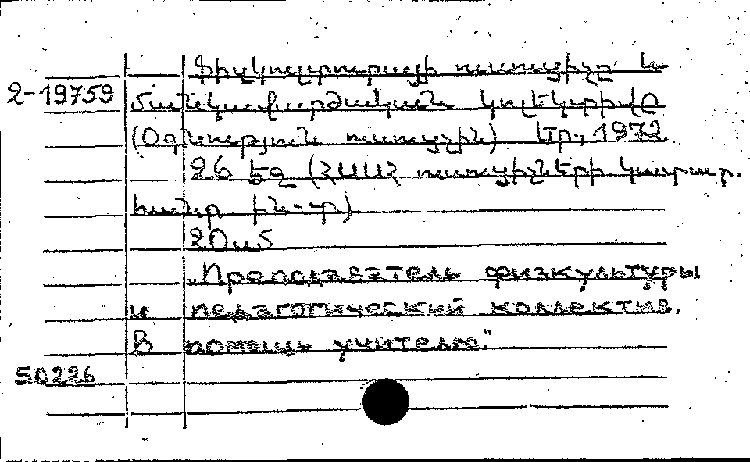 Ֆիզկուլտուրայի ուսուցիչը և
2-19759 մանկավարժական կոլեկտիվը
(Օգնություն ուսուցչին) Եր., 1972
26 էջ (ՀՍՍՀ ուսուցիչների կատար.
հանր. ին-տ)
20սմ
„Преподаватель физкультуры
и педагогический коллектив.
В помощь учителю."
50226